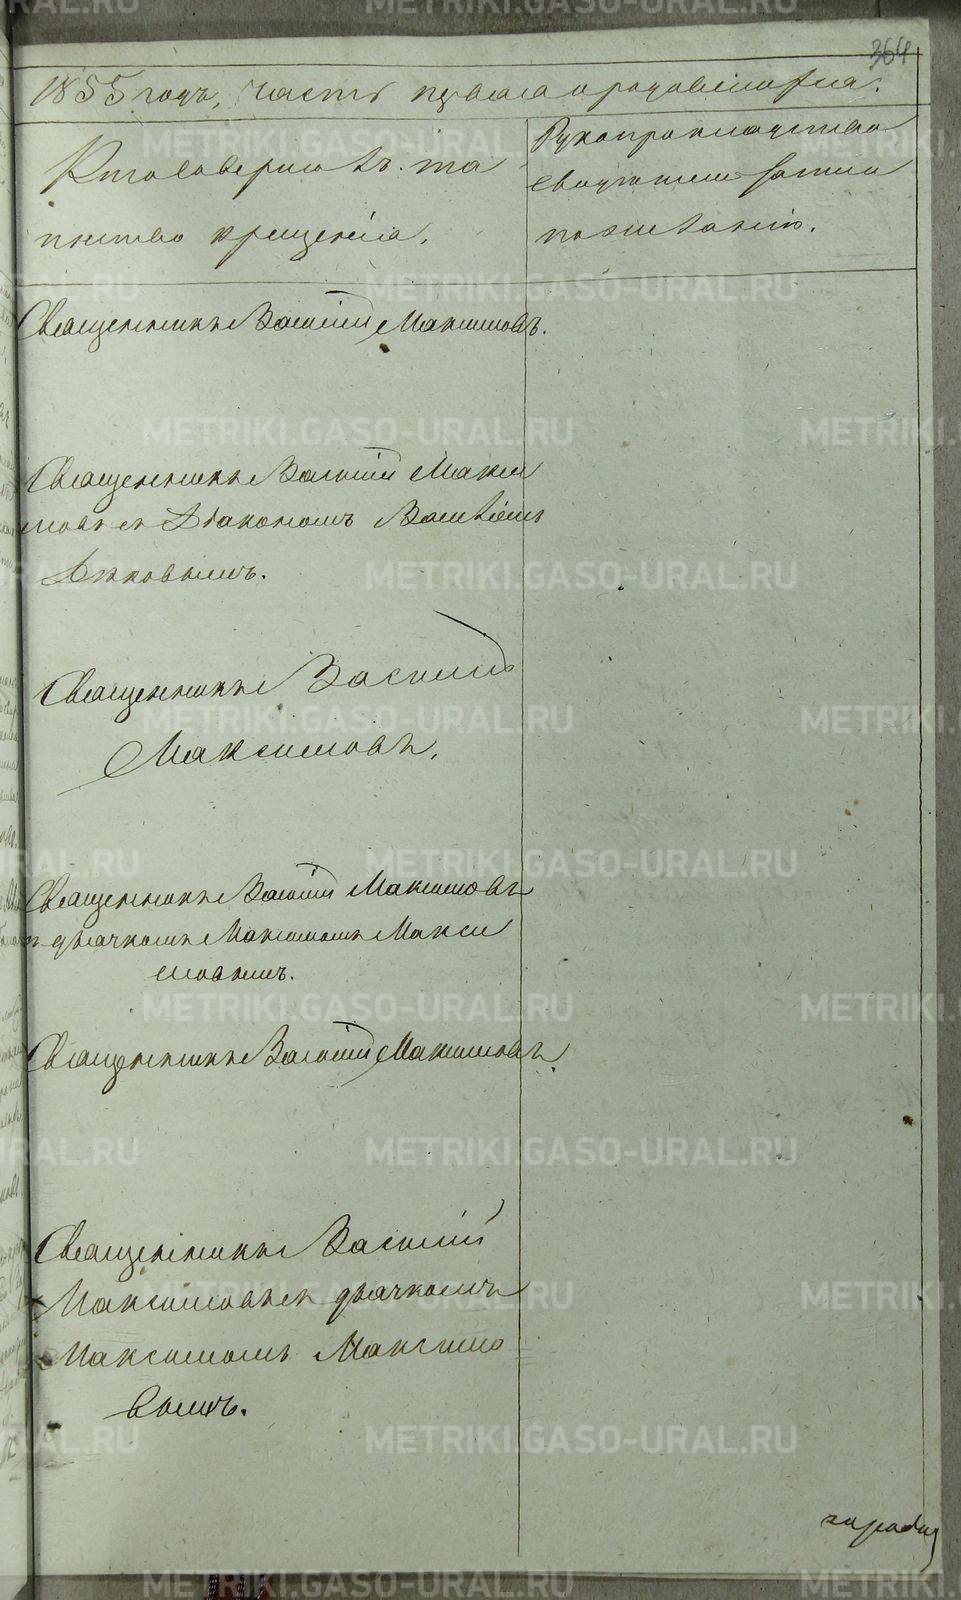 364
1855 года, часть первая о родившихся.
Кто совершалъ та
инство крещенія.
Рукоприкладство
свидѣтелей записи
по желанію.
Священникъ Василій Максимовъ.
Священникъ Василій Макси
мовъ съ Діакономъ
Священникъ Василій
Максимовъ.
Священникъ Василій Максимовъ
съ дьячкомъ Максимомъ Макси
мовымъ.
Священникъ Василій Максимовъ.
Священникъ Василій
Максимовъ съ дьячкомъ
Максимомъ Максимо
вымъ.
METRIKI.GASO-URAL.RU